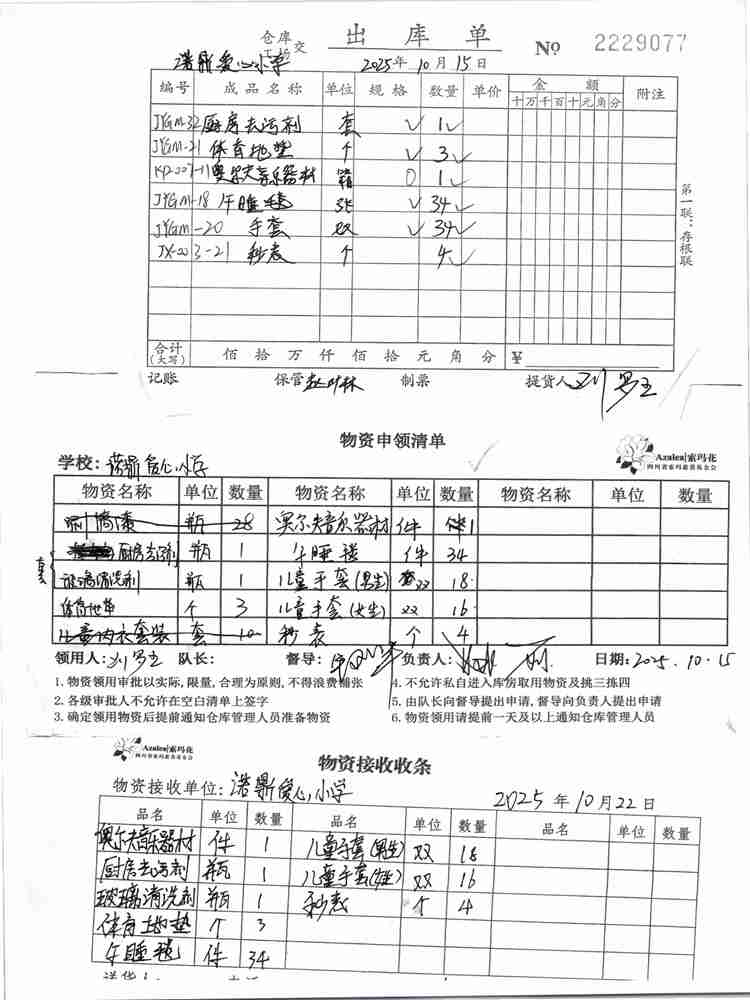 仓库 交 出库单 № 2229077
诺鼎爱心小学 2025年 10月 15日
编号 成品名称 单位 规格 数量 单价 金额 附注
十万千百十元角分
JYGM-32 厨房去污剂 套 √ 1√
JYGM-21 体育地垫 个 √ 3√
KP-007-11 奥尔夫音乐器材 箱 0 1√
JYGM-18 午睡毯 张 √ 34√
JYGM-20 手套 双 √ 34√
JX-003-21 秒表 个 4√
第一联:存根联
合计(大写) 佰 拾 万 仟 佰 拾 元 角 分 ¥
记账 保管 制票 提货人 刘罗玉
物资申领清单
学校: 诺鼎爱心小学 Azalea|索玛花
四川省索玛慈善基金会
物资名称 单位 数量 物资名称 单位 数量 物资名称 单位 数量
瓶 28 奥尔夫音乐器材 件 1
厨房去污剂 瓶 1 午睡毯 件 34
玻璃清洗剂 瓶 1 儿童手套(男生) 双 18
体育地垫 个 3 儿童手套(女生) 双 16
儿童内衣套装 套 10 秒表 个 4
领用人: 刘罗玉 队长: 督导: 负责人: 日期: 2025.10.15
1.物资领用审批以实际,限量,合理为原则,不得浪费铺张 4.不允许私自进入库房取用物资及挑三拣四
2.各级审批人不允许在空白清单上签字 5.由队长向督导提出申请,督导向负责人提出申请
3.确定领用物资后提前通知仓库管理人员准备物资 6.物资领用请提前一天及以上通知仓库管理人员
Azalea|索玛花
四川省索玛慈善基金会
物资接收收条
物资接收单位: 诺鼎爱心小学 2025年10月22日
品名 单位 数量 品名 单位 数量 品名 单位 数量
奥尔夫音乐器材 件 1 儿童手套(男生) 双 18
厨房去污剂 瓶 1 儿童手套(女生) 双 16
玻璃清洗剂 瓶 1 秒表 个 4
体育地垫 个 3
午睡毯 件 34